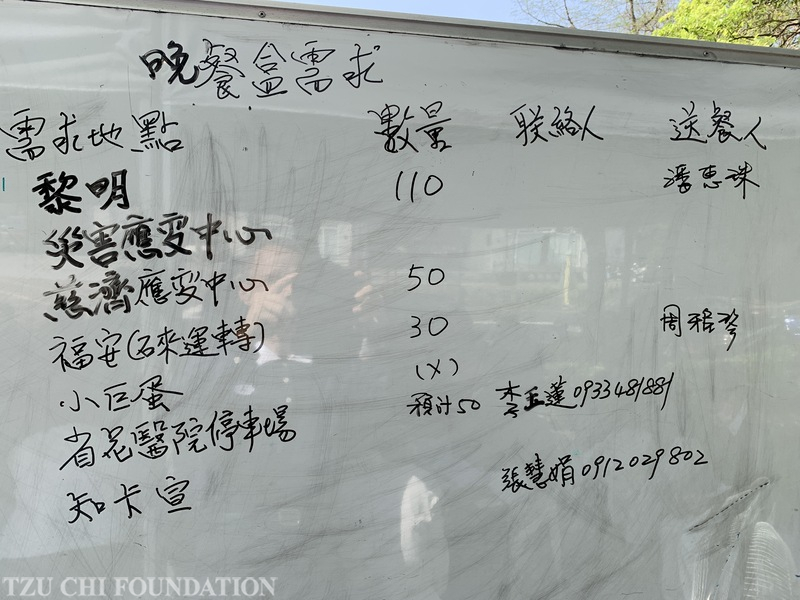 晚餐盒需求
需求地點 數量 联絡人 送餐人
黎明 110 潘惠珠
災害應変中心
慈濟應変中心 50
福安(石來運轉) 30 周雅琴
小巨蛋 (X)
省花醫院停車場 預计50 李玉蓮0933481881
知卡宣 張慧娟0912029802
TZU CHI FOUNDATION